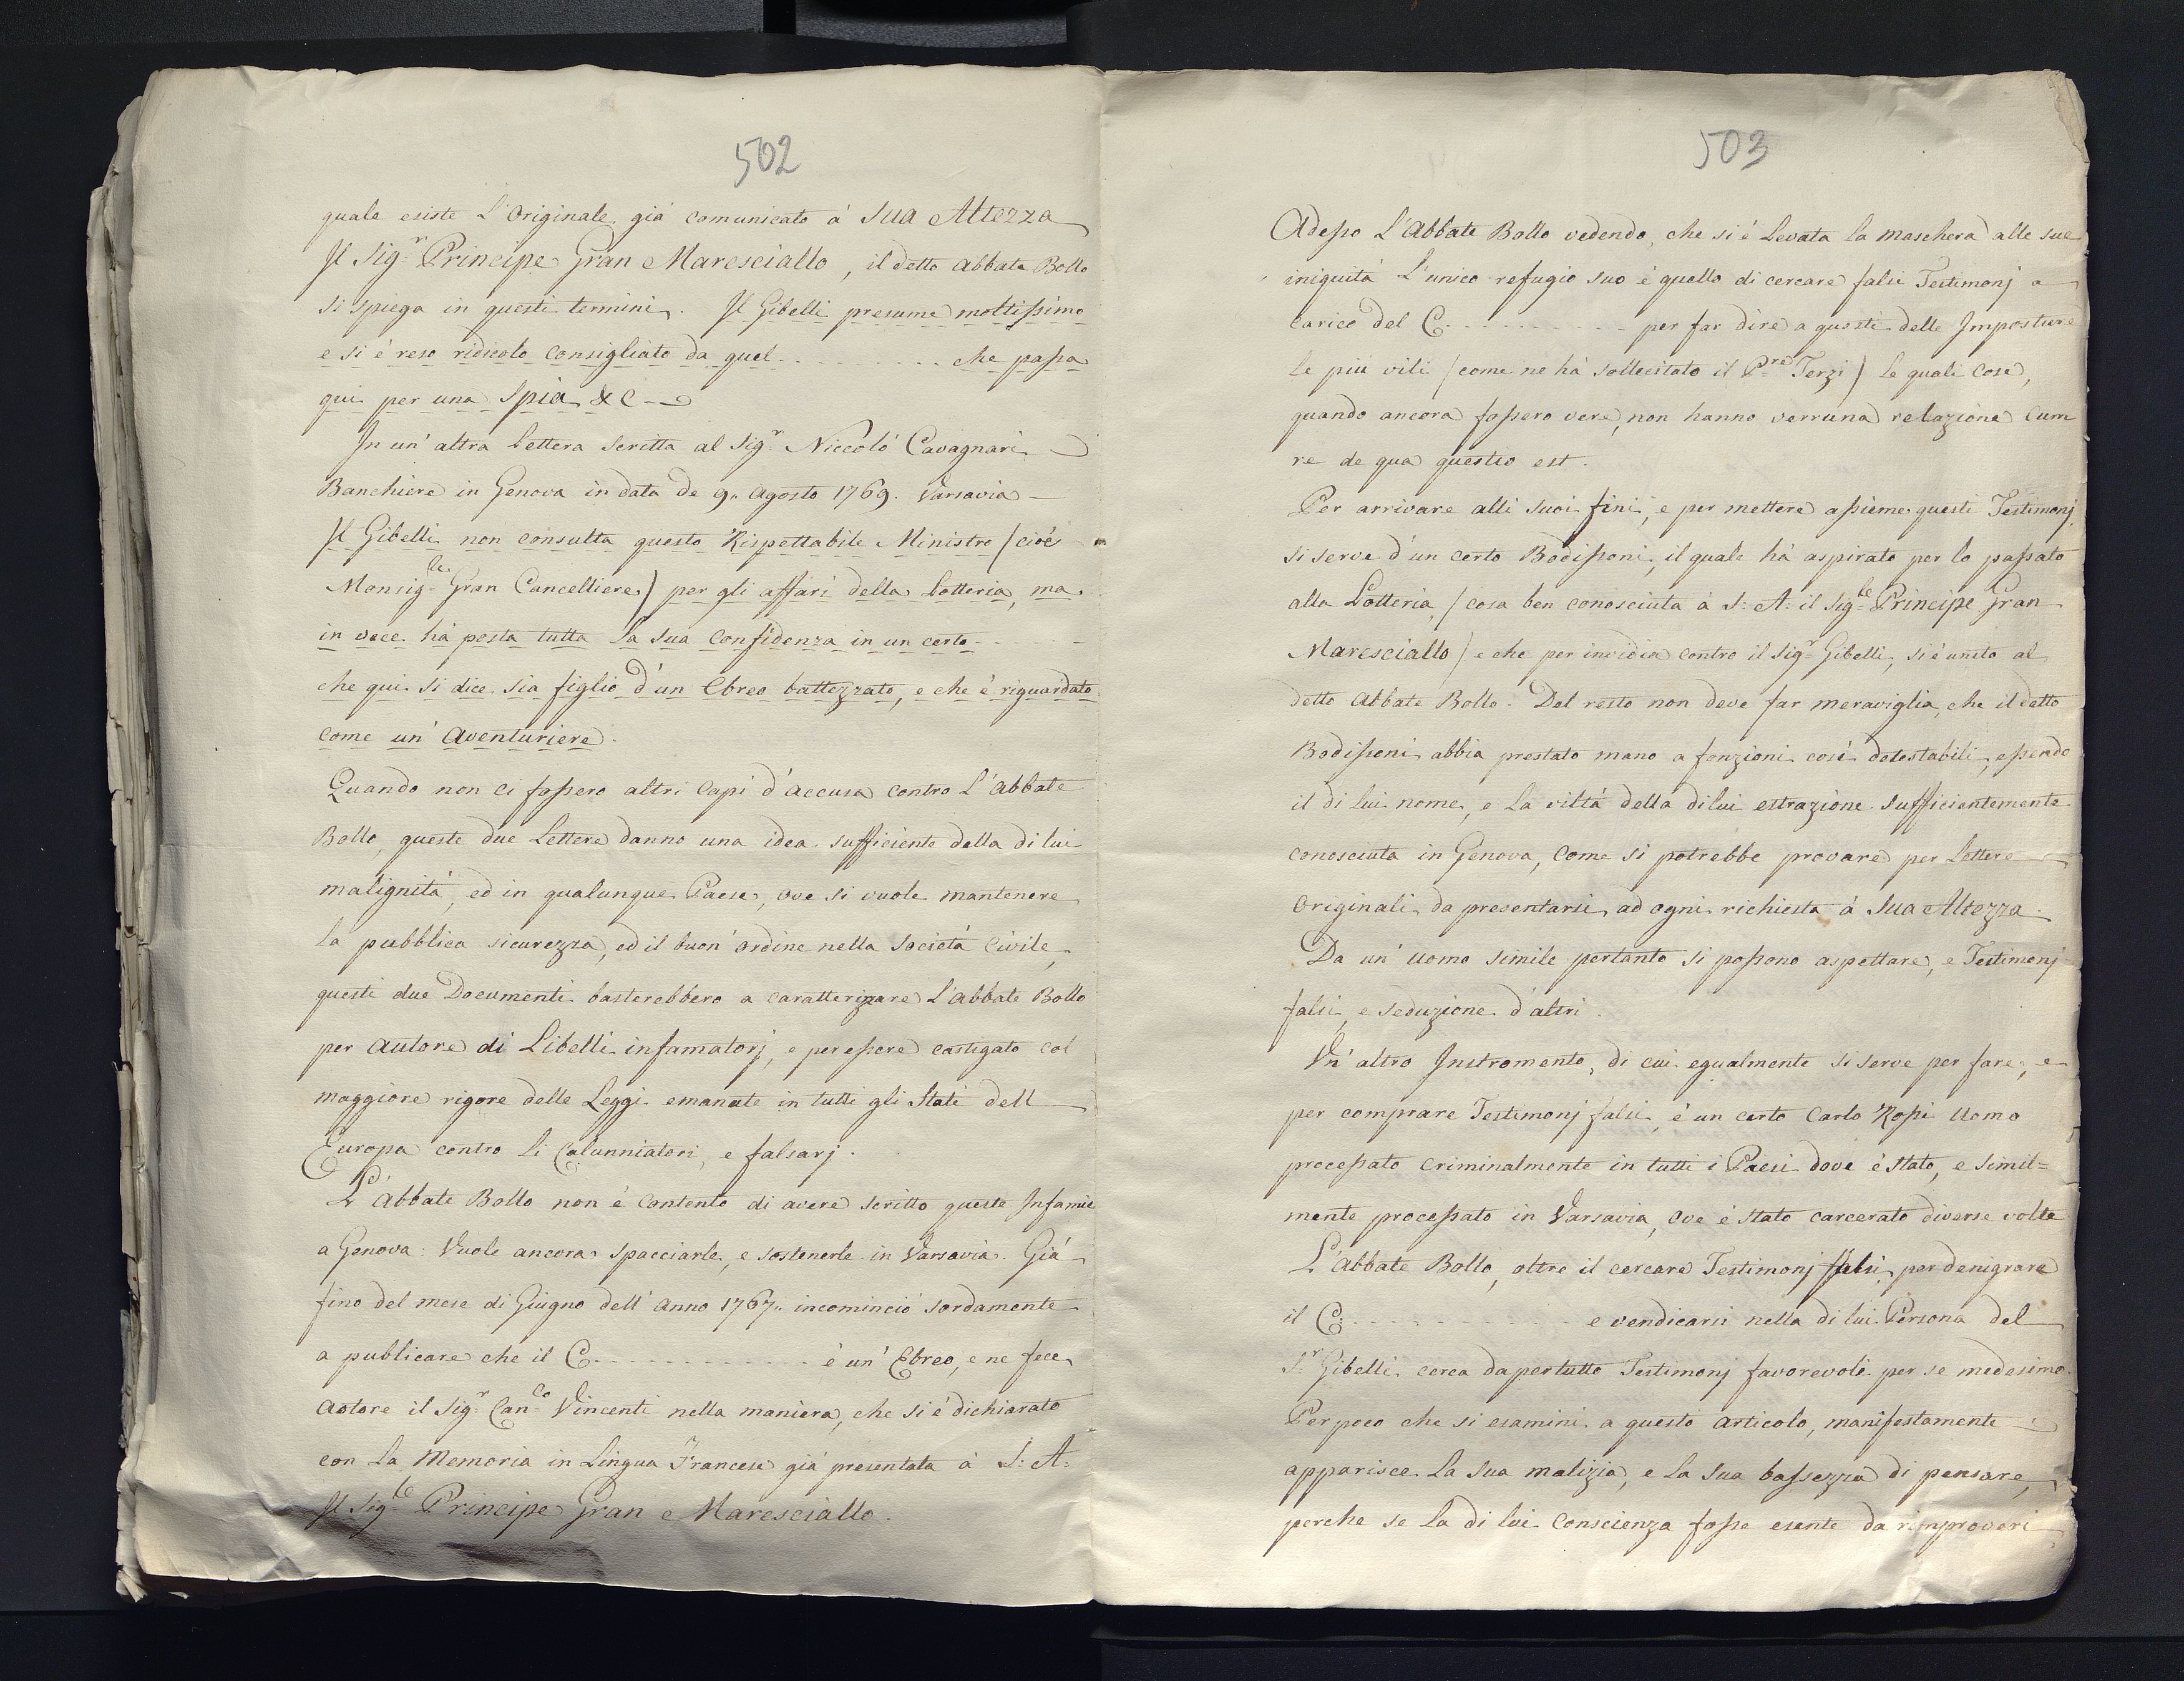 502
quale esiste L'Originale già comunicato à Sua Altezza
Il Sig.r Principe Gran Maresciallo, il detto Abbate Bollo
si spiega in questi termini. Il Gibelli presume moltissimo
e si è reso ridicolo consigliato da quel . . . . . . . . . . che passa
qui per una Spia &c
In un' altra lettera scritta al Sig.r Niccolò Cavagnari
Banchiere in Genova in data de 9. Agosto 1769. Varsavia —
Il Gibelli non consulta questo Rispettabile Ministro / cioè
Monsig.le Gran Cancelliere / per gli affari della Lotteria, ma
in vece hà posta tutta la sua confidenza in un certo . . . . .
che qui si dice sia figlio d'un Ebreo battezzato, e che è riguardato
come un' Aventuriere.
Quando non ci fossero altri Capi d'accusa contro L'Abbate
Bollo, queste due Lettere danno una idea sufficiente della di lui
malignità, ed in qualunque Paese, ove si vuole mantenere
la pubblica sicurezza, ed il buon' ordine nella Società Civile,
questi due Documenti basterebbero a caratterizare L'Abbate Bollo
per Autore di Libelli infamatorj, e per essere castigato col
maggiore rigore delle Leggi emanate in tutti gli Stati dell
Europa contro li Calunniatori, e falsarj.
L'Abbate Bollo non è contento di avere scritto queste Infamie
a Genova: Vuole ancora spacciarle, e sostenerle in Varsavia. Già
fino del mese di Giugno dell' Anno 1767. incominciò sordamente
a publicare che il C. . . . . . . . . . . . è un' Ebreo, e ne fece
Autore il Sig.r Can.co Vincenti nella maniera, che si è dichiarato
con La Memoria in Lingua Francese già presentata à S: A:
Il Sig.le Principe Gran Maresciallo.
503
Adesso L'Abbate Bollo vedendo, che si è Levata la Maschera alle sue
iniquità L'unico refugio suo è quello di cercare falsi Testimonj a
carico del C. . . . . . . . . . . per far dire a questi delle Imposture
le più vili / come ne hà sollecitato il P.re Terzi / le quali cose,
quando ancora fossero vere, non hanno verruna relazione Cum
re de qua questio est.
Per arrivare alli suoi fini, e per mettere assieme questi Testimonj
si serve d'un certo Bodissoni, il quale hà aspirato per lo passato
alla Lotteria, / cosa ben conosciuta à S: A: il Sig.le Principe Gran
Maresciallo / e che per invidia contro il Sig.r Gibelli, si è unito al
detto Abbate Bollo. Del resto non deve far meraviglia, che il detto
Bodissoni abbia prestato mano a fonzioni così detestabili, essendo
il di lui nome, e La viltà della di lui estrazione sufficientemente
conosciuta in Genova, Come si potrebbe provare per Lettere
Originali da presentarsi ad ogni richiesta à Sua Altezza.
Da un' Uomo simile pertanto si possono aspettare, e Testimonj
falsi, e seduzione d'altri.
Un' altro Instromento, di cui egualmente si serve per fare, e
per comprare Testimonj falsi, è un certo Carlo Rossi Uomo
processato Criminalmente in tutti i Paesi dove è stato, e simil=
mente processato in Varsavia, Ove è stato carcerato diverse volte
L'Abbate Bollo, oltre il cercare Testimonj falsi per denigrare
il C. . . . . . . . . . . . e vendicarsi nella di lui Persona del
S.r Gibelli, cerca da pertutto Testimonj favorevoli per se medesimo.
Per poco che si esamini a questo Articolo, manifestamente
apparisce La Sua malizia, e la sua bassezza di pensare,
perche se La di lui Conscienza fosse esente da rimproveri